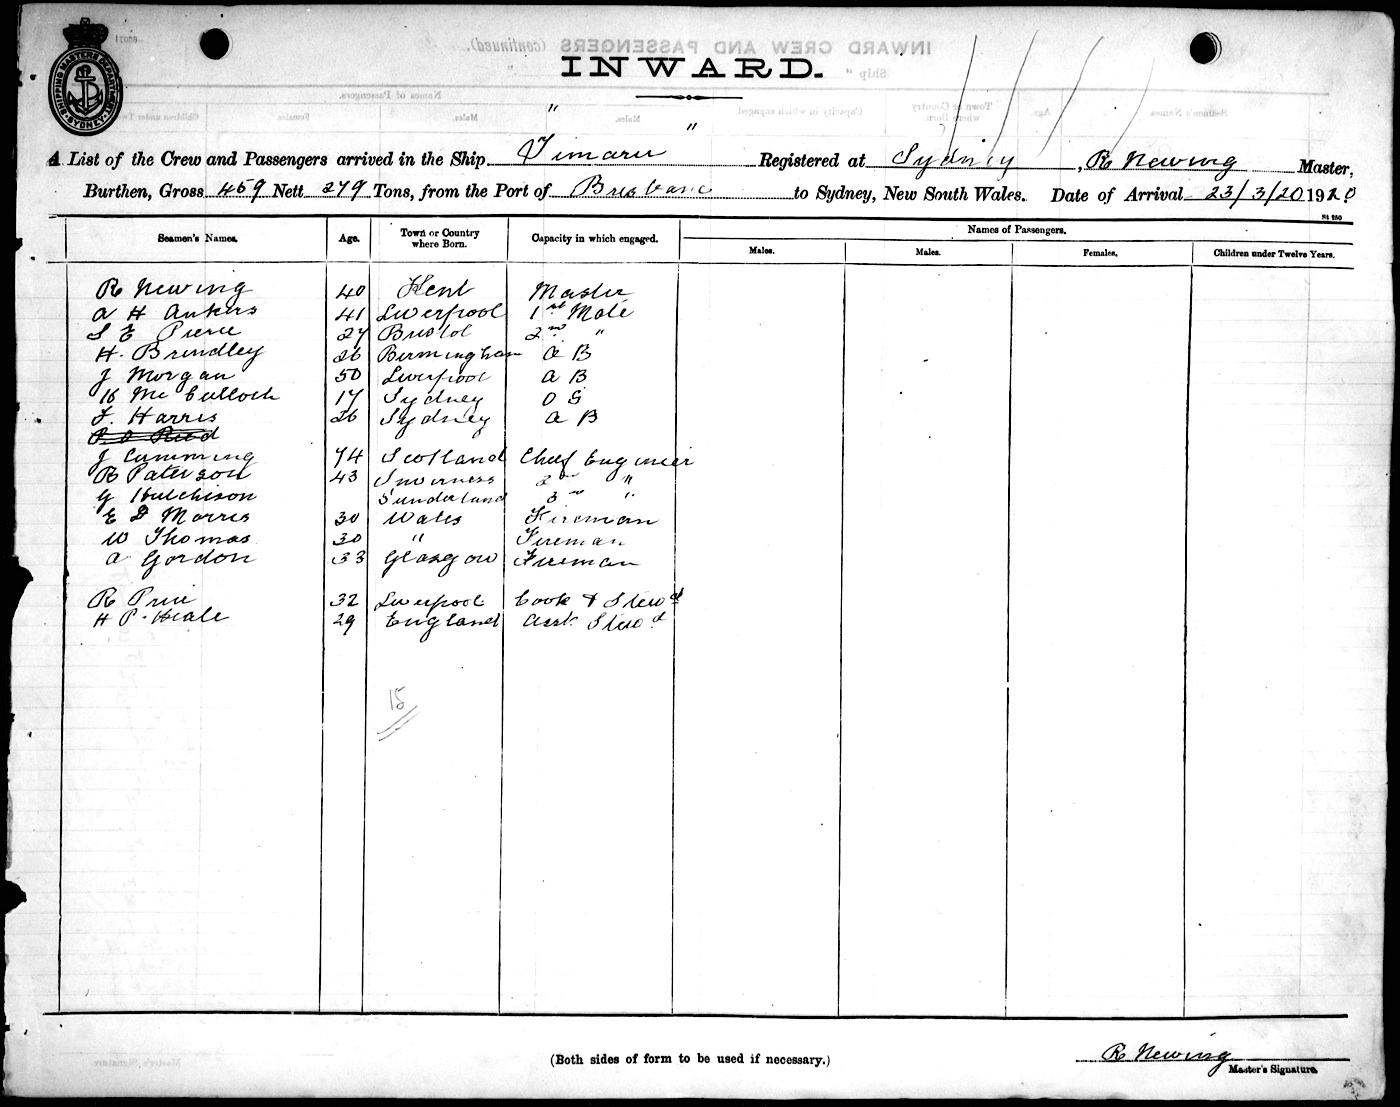 SHIPPING MASTERS DEPARTMENT
SYDNEY
INWARD.
" "
A List of the Crew and Passengers arrived in the Ship Timaru Registered at Sydney, R Newing Master,
Burthen, Gross 459 Nett 279 Tons, from the Port of Brisbane to Sydney, New South Wales. Date of Arrival 23/3/20 1920
St 250
Seamen's Names. Age. Town or Country where Born. Capacity in which engaged. Names of Passengers.
Males. Males. Females. Children under Twelve Years.
R Newing 40 Kent Master
A H Ankers 41 Liverpool 1st Mate
S E Pierce 27 Bristol 2nd "
H. Brindley 26 Birmingham A B
J Morgan 50 Liverpool A B
K McCulloch 17 Sydney O S
F. Harris 26 Sydney A B
Reed
J Cumming 74 Scotland Chief Engineer
R Paterson 43 Inverness 2nd "
G Hutchison Sunderland 3rd "
E D Morris 30 Wales Fireman
W Thomas 30 " Fireman
A Gordon 33 Glasgow Fireman
R Price 32 Liverpool Cook & Stewd
H P. Heale 29 England Asst. Stewd
15
(Both sides of form to be used if necessary.)
R Newing
Master's Signature.